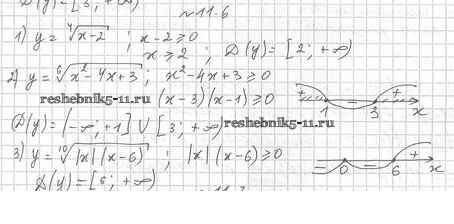 D(y) = [3; +∞)
№11.6
1) y = ⁴√(x-2) ; x-2≥0
x≥2 ; D(y) = [2; +∞)
2) y = ⁶√(x²-4x+3) ; x²-4x+3≥0
reshebnik5-11.ru (x-3)(x-1)≥0
+ - 3 + x
D(y) = (-∞; +1] ∪ [3; +∞) reshebnik5-11.ru
3) y = ¹⁰√(|x|(x-6)) ; |x|(x-6)≥0
- 0 - 6 + x
D(y) = [6; +∞)